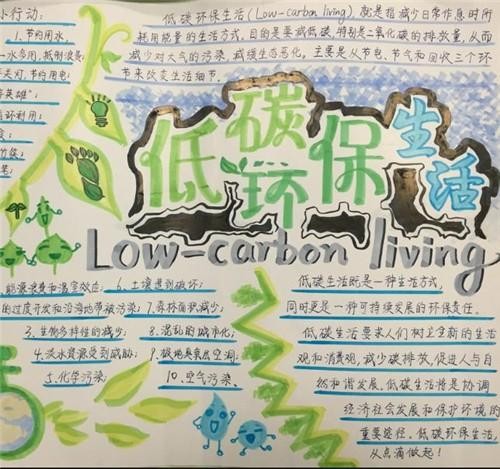 小行动:
1.节约用水
一水多用,抵制浪费;
关灯,节约用电;
英雄";
环利用;
低碳环保生活(Low-carbon living),就是指减少日常作息时所
耗用能量的生活方式,目的是要减低碳,特别是二氧化碳的排放量,从而
减少对大气的污染,减缓生态恶化。主要是从节电、节气和回收三个环
节来改变生活细节。
低碳环保生活
Low-carbon living
能源浪费和温室效应;
的过度开发和沿海地带被污染;
3.生物多样性的减少;
4.淡水资源受到威胁;
5.化学污染;
6.土壤遭到破坏;
7.森林面积减少;
8.混乱的城市化;
9.极地臭氧层空洞;
10.空气污染、
低碳生活既是一种生活方式,
同时更是一种可持续发展的环保责任。
低碳生活要求人们树立全新的生活
观和消费观,减少碳排放,促进人与自
然和谐发展,低碳生活将是协调
经济社会发展和保护环境的
重要途径。低碳环保生活,
从点滴做起!